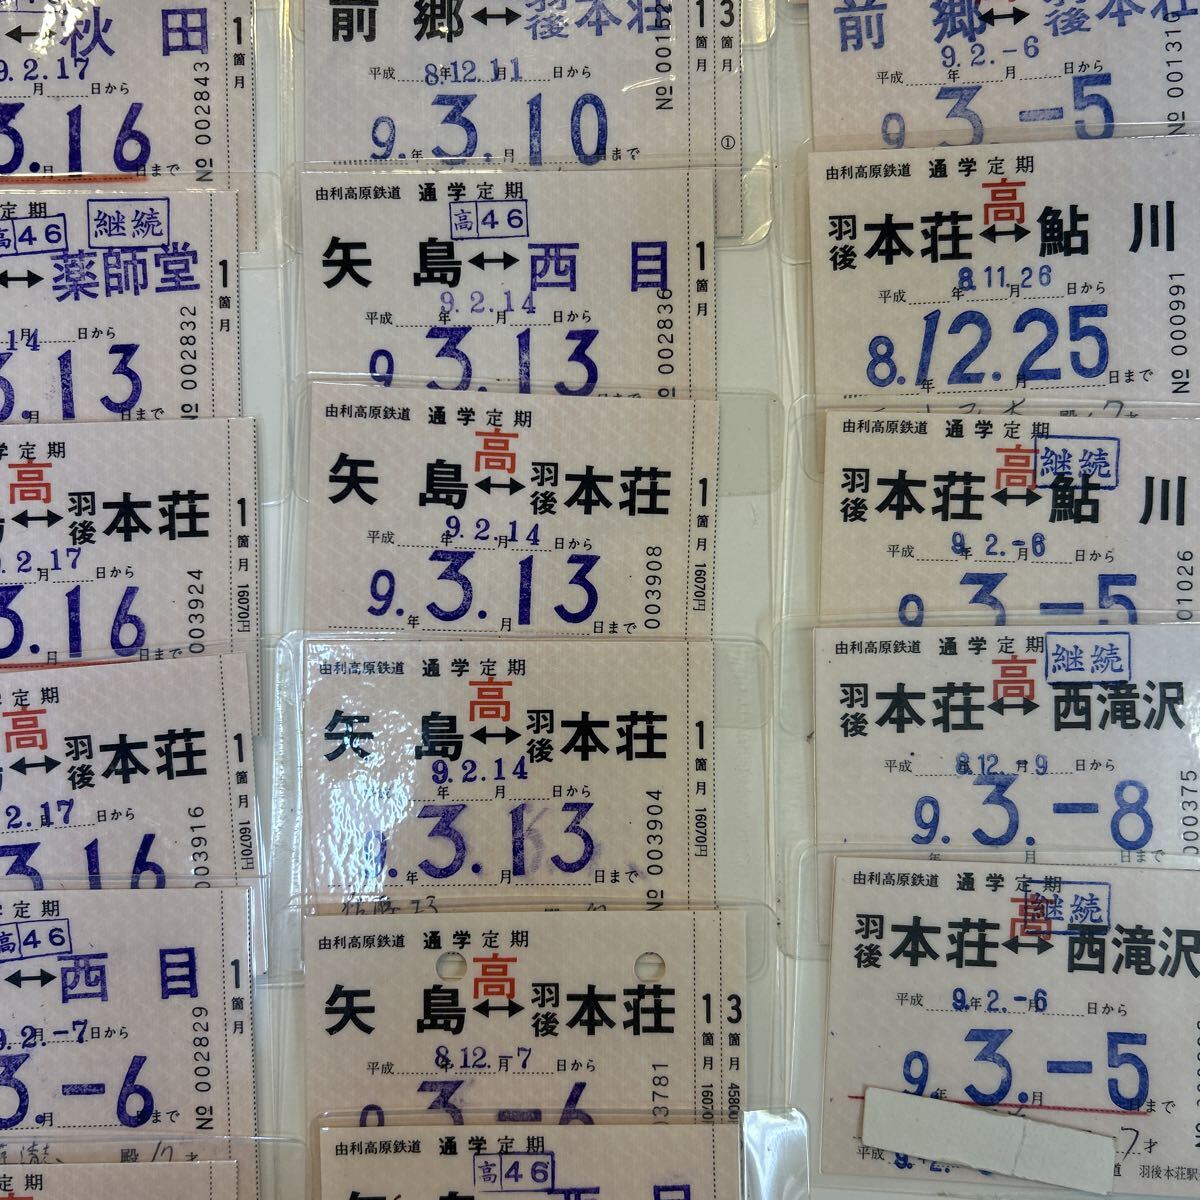 ↔秋田
9.2.17
月 日から
3.16
日まで
№ 002843
1箇月
定期
高46 継続
↔薬師堂
14
月 日から
3.13
月 日まで
№ 002832
1箇月
学定期
高
↔羽後本荘
9.2.17
月 日から
3.16
日まで
003924
1箇月 16070円
定期
高
↔羽後本荘
2.17
月 日から
3.16
003916
1箇月 16070円
学定期
高46
↔西目
9.2.-7
月 日から
3.-6
月 日まで
№ 002829
1箇月
殿 17才
定期
前郷↔羽後本荘
平成 8.12.11 日から
9.年3.月10日まで
1箇月
3箇月
①
由利高原鉄道 通学定期
高46
矢島↔西目
9.2.14
平成 年 月 日から
9.3.13
№ 002836
1箇月
由利高原鉄道 通学定期
高
矢島↔羽後本荘
9.2.14
平成 年 月 日から
9.3.13
年 月 日まで
003908
1箇月 16070円
由利高原鉄道 通学定期
高
矢島↔羽後本荘
9.2.14
平成 年 月 日から
9.3.13
年 月 日まで
№ 003904
1箇月 16070円
由利高原鉄道 通学定期
高
矢島↔羽後本荘
平成 8.12.-7 日から
9.3.-6
03781
1箇月 16070
3箇月 4580
由利高原鉄道 通学定期
高46
矢島 西目
前郷↔羽後本荘
9.2.-6
平成 年 月 日から
9.3.-5
№ 001310
由利高原鉄道 通学定期
高
羽後本荘↔鮎川
8.11.26
平成 年 月 日から
8.12.25
年 月 日まで
№ 000991
由利高原鉄道 通学定期
高 継続
羽後本荘↔鮎川
平成 9.2.-6 日から
9.3.-5
01026
由利高原鉄道 通学定期
高 継続
羽後本荘↔西滝沢
平成 8.12.-9 日から
9.3.-8
000375
由利高原鉄道 通学定期
高 継続
羽後本荘↔西滝沢
平成 9.2.-6 日から
9.3.-5
年 月 日まで
7才
平成
羽後本荘駅